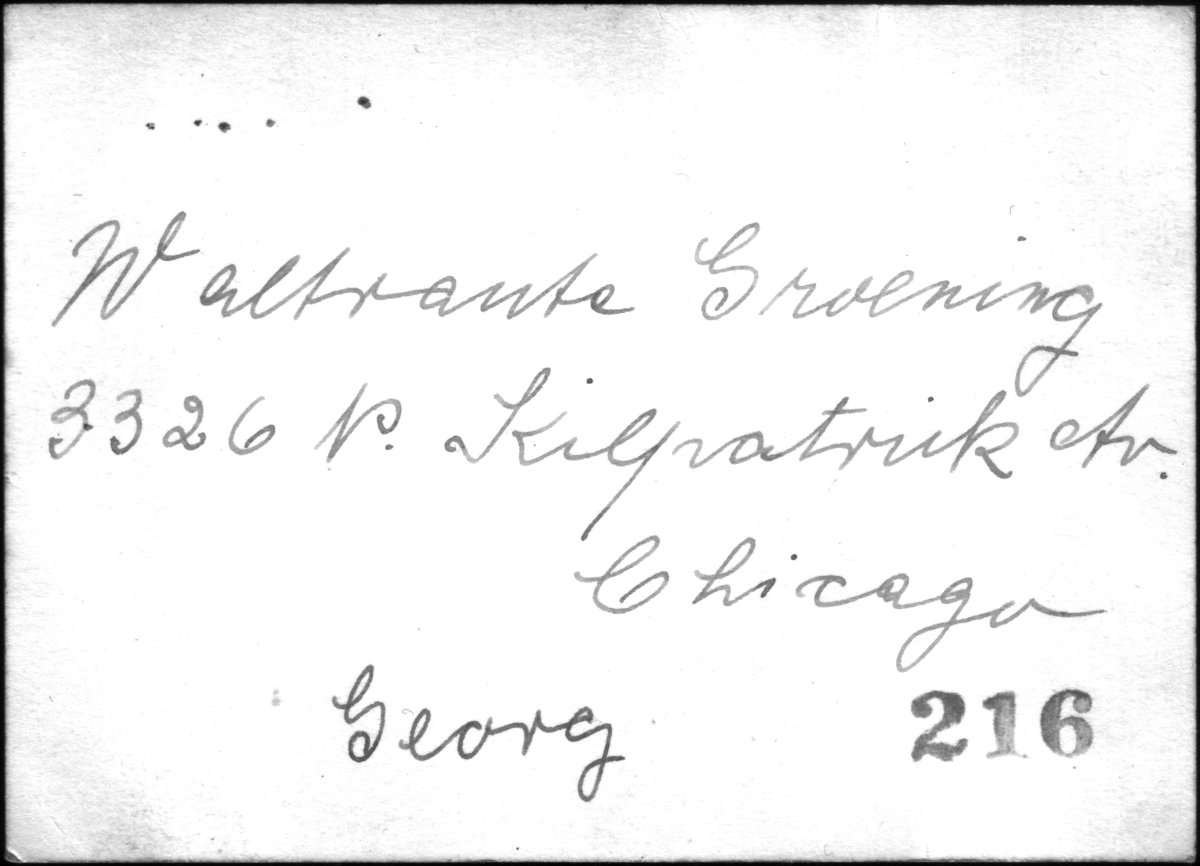 Waltraute Groening
3326 N. Kilpatrick Av.
Chicago
Georg
216